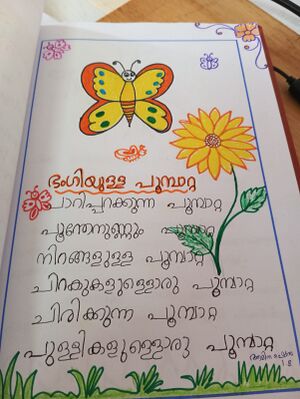 ഭംഗിയുള്ള പൂമ്പാറ്റ
പാറിപ്പറക്കുന്ന പൂമ്പാറ്റ
പൂന്തേനുണ്ണും പൂമ്പാറ്റ
നിറങ്ങളുള്ള പൂമ്പാറ്റ
ചിറകുകളുള്ളൊരു പൂമ്പാറ്റ
ചിരിക്കുന്ന പൂമ്പാറ്റ
പുള്ളികളുള്ളൊരു പൂമ്പാറ്റ
1 B